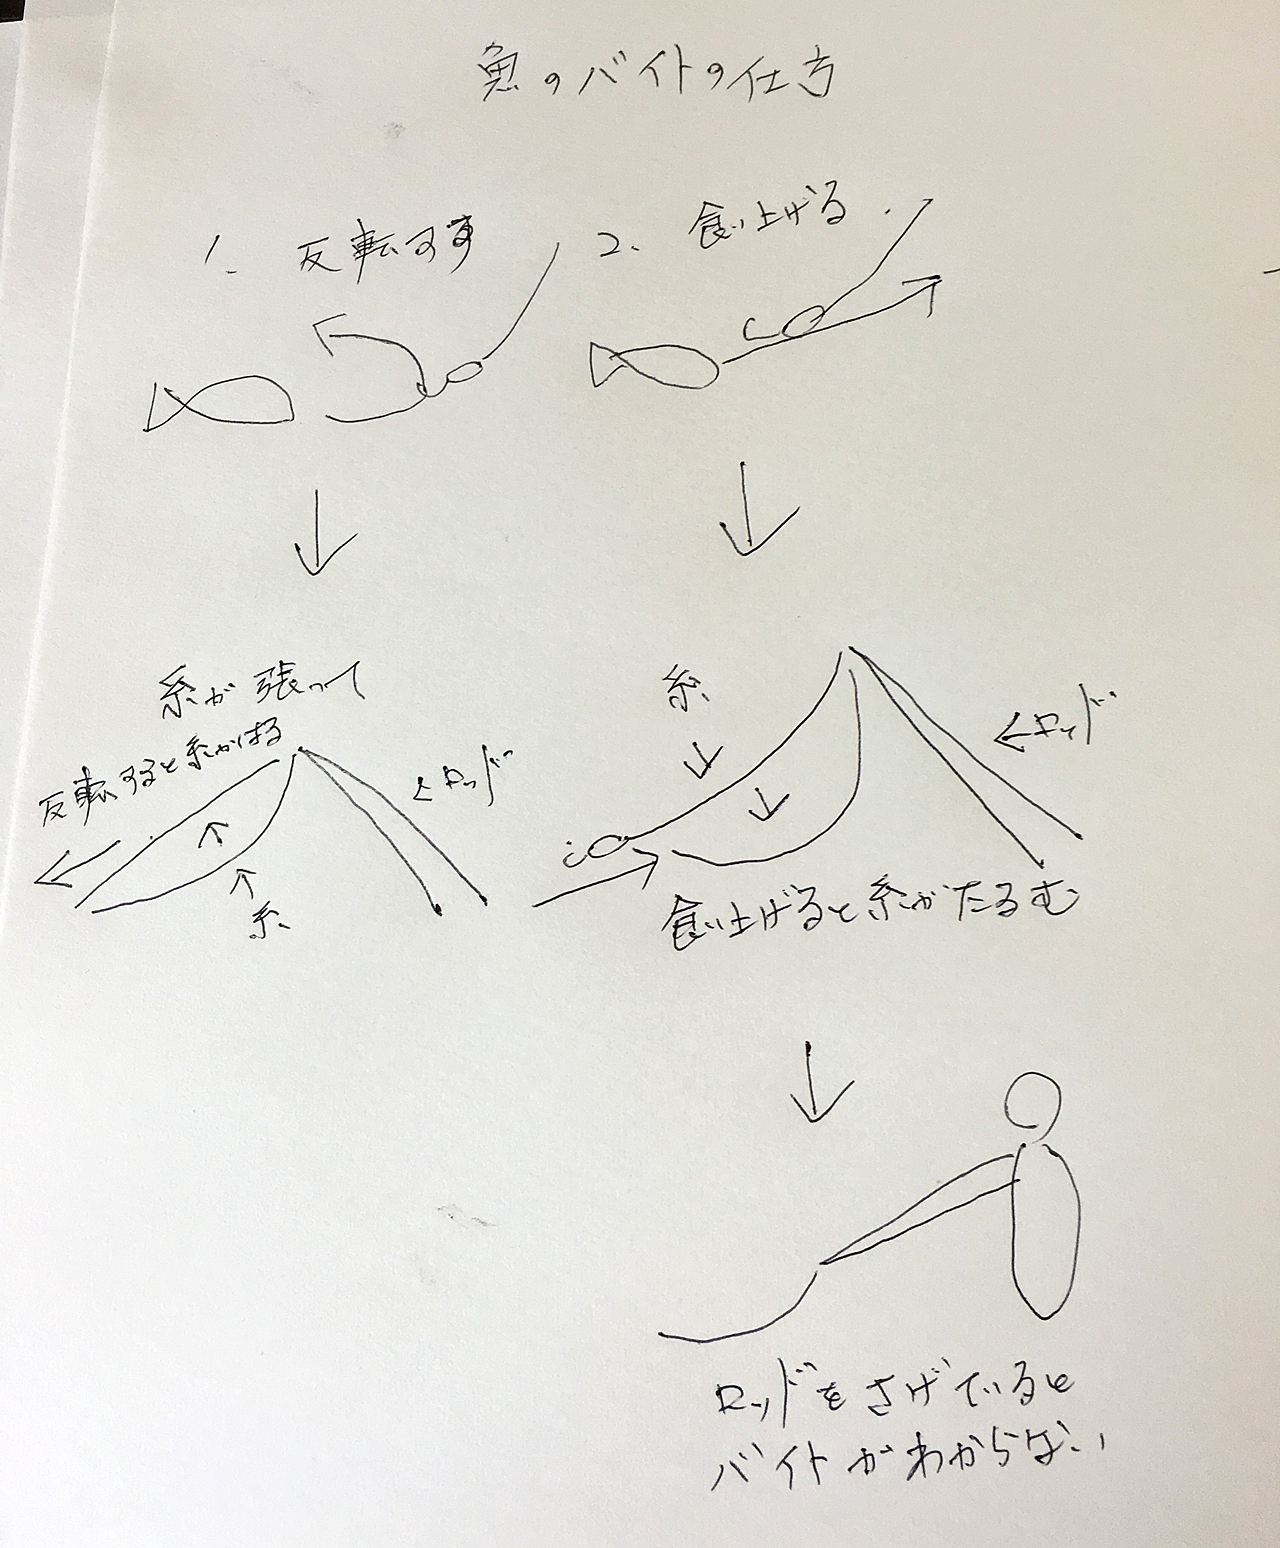 魚のバイトの仕方
1. 反転する
2、 食い上げる
糸が張って
反転すると糸がはる
←ロッド
糸
糸
←ロッド
食い上げると糸がたるむ
ロッドをさげていると
バイトがわからない